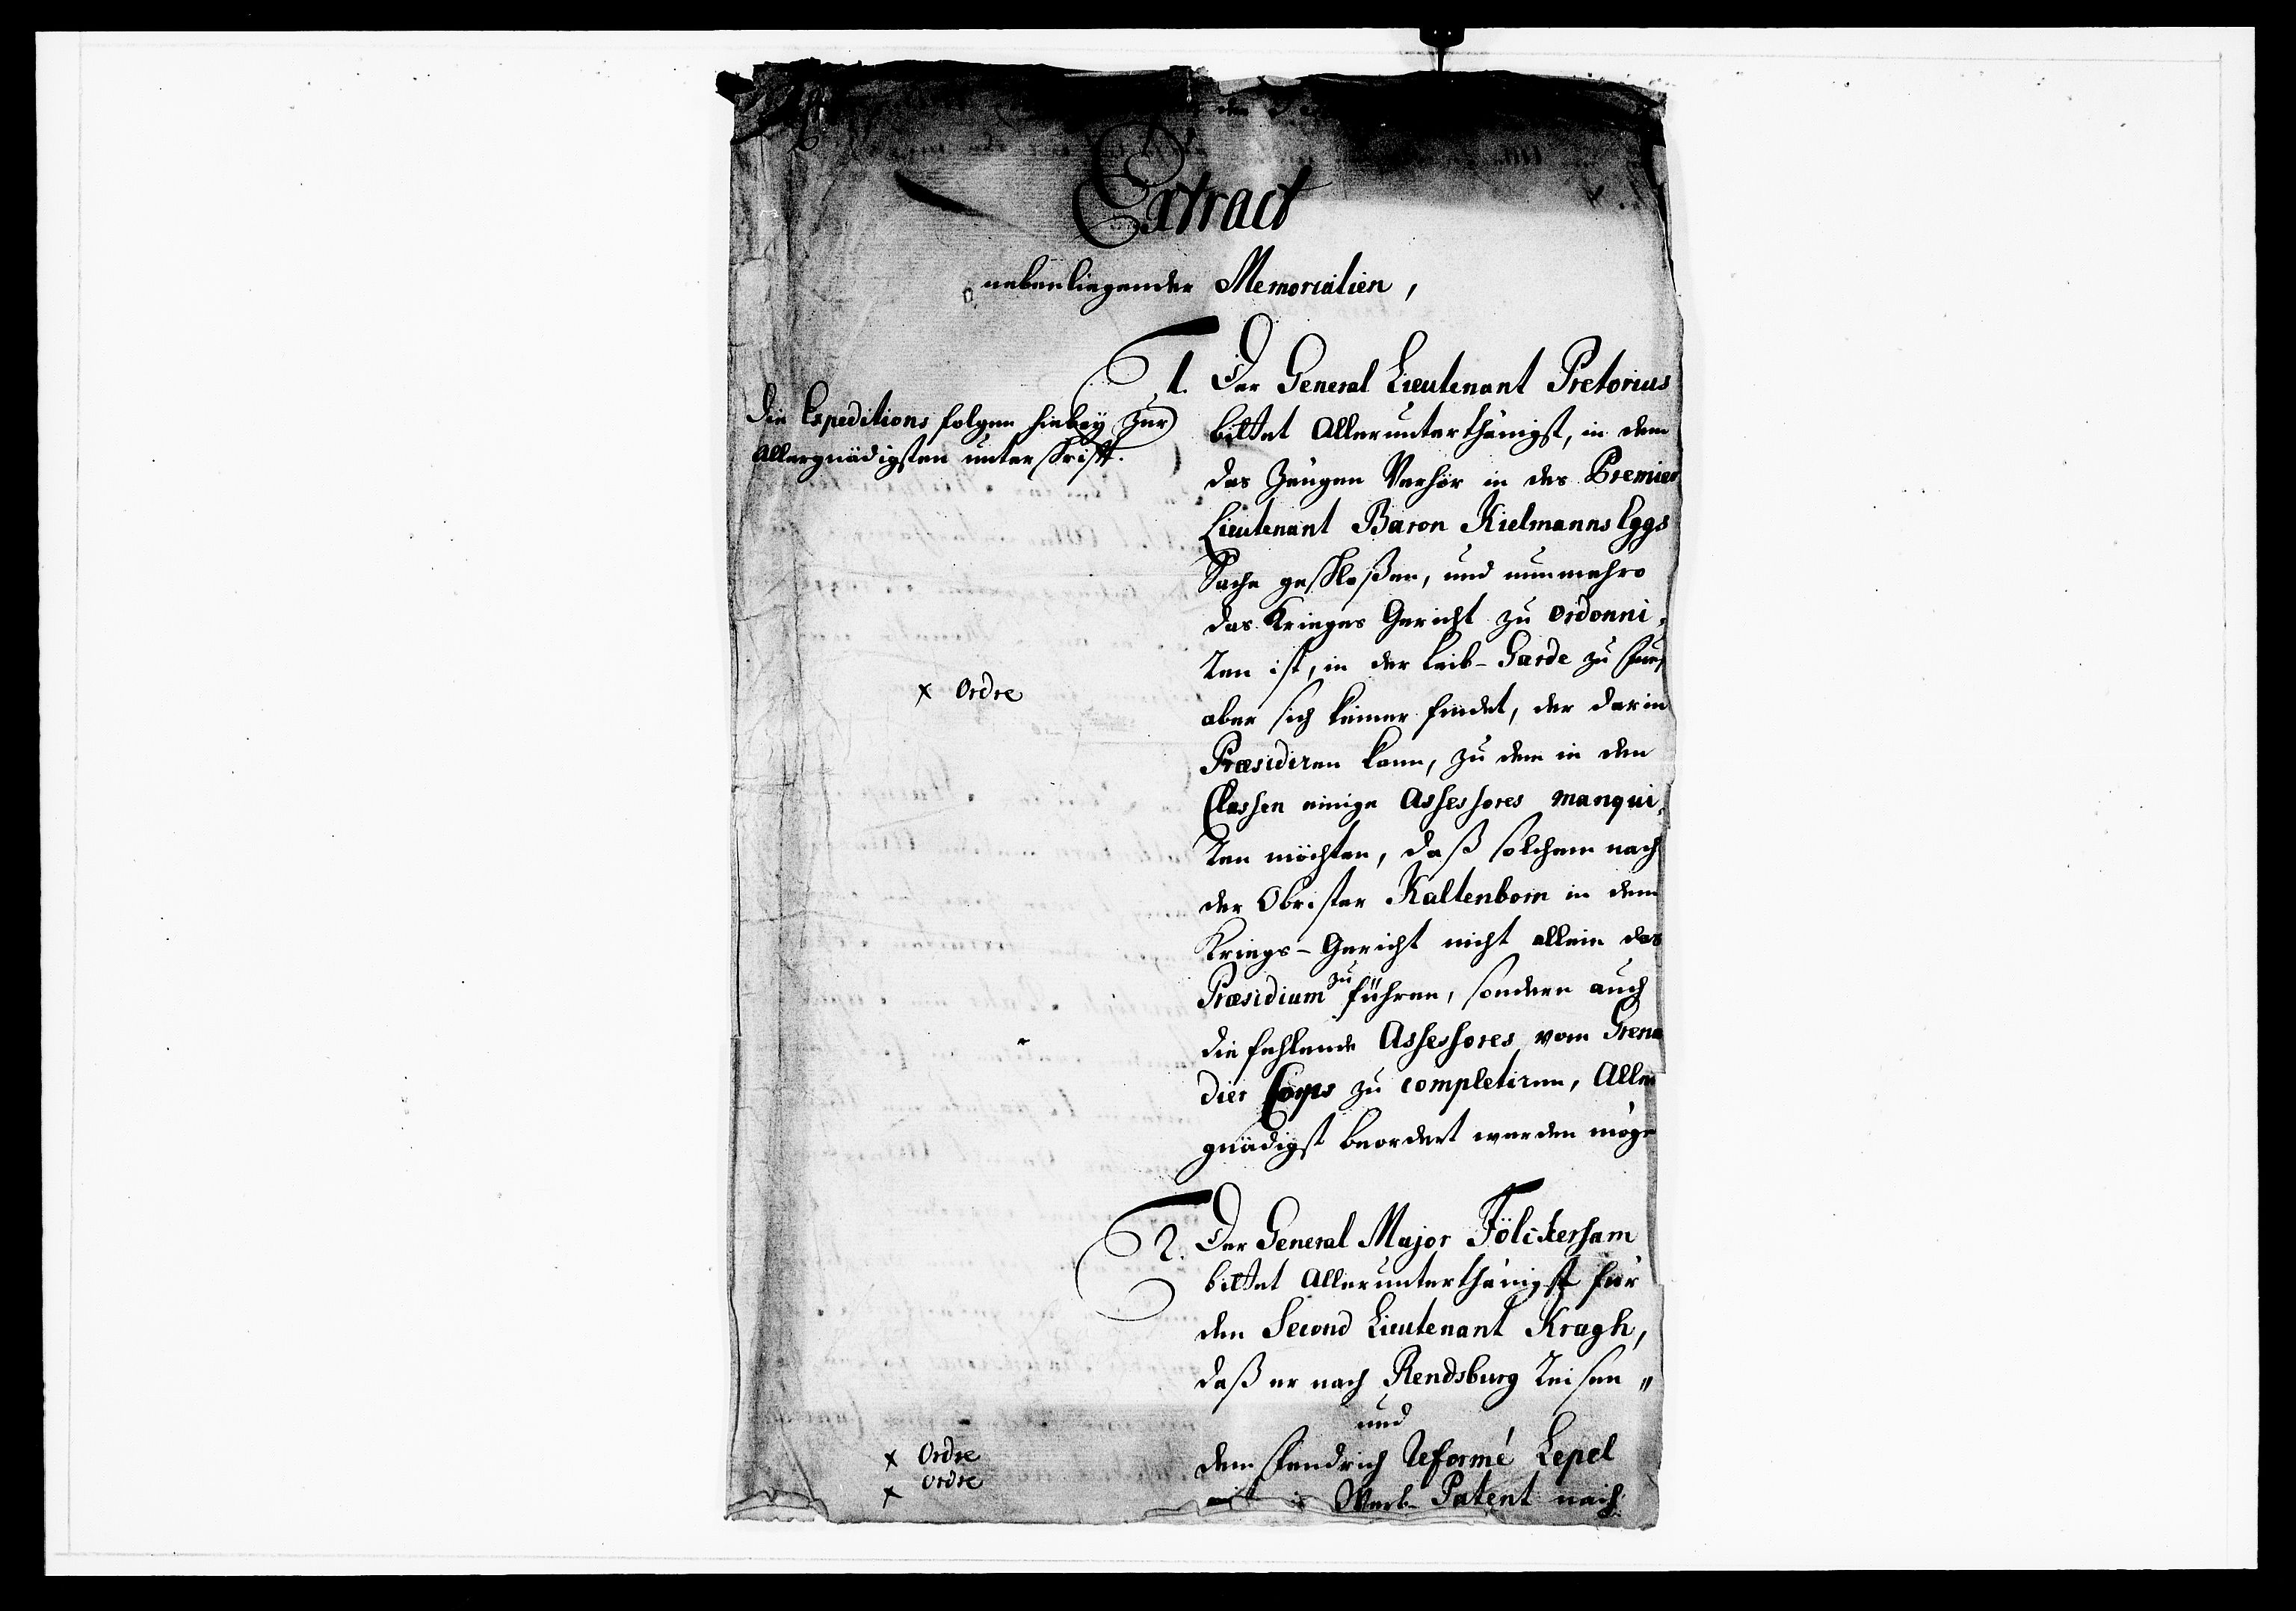 Extract
nebenliegender Memorialien,
1. Der General Lieutenant Pretorius
bittet Allerunterthänigst, in dem
das Zeugen Verhör in des Premier
Lieutenant Baron Kielmanns Eggs
Sache geschloßen, und nunmehro
das Krieges Gericht zu ordonni-
ren ist, in der Leib-Garde zu Fuß
aber sich keiner findet, der darin
Præsidiren kann, zu dem in den
Classen einige Assessores manqui-
ren möchten, daß solchem nach
der Obrister Kaltenborn in dem
Kriegs-Gericht nicht allein das
Præsidium zu führen, sondern auch
die fehlende Assessores vom Grena
dier Corps zu completiren, Aller
gnädigst beordert werden möge
Die Expeditions folgen hiebey zur
Allergnädigsten unterschrifft.
x Ordre
2. Der General Major Fölckersham
bittet Allerunterthänigst für
den Second Lieutenant Kragh,
daß er nach Rendsburg reisen "
und
dem Fendrich Reformé Lepel
mit Werb-Patent nach
x Ordre
x Ordre